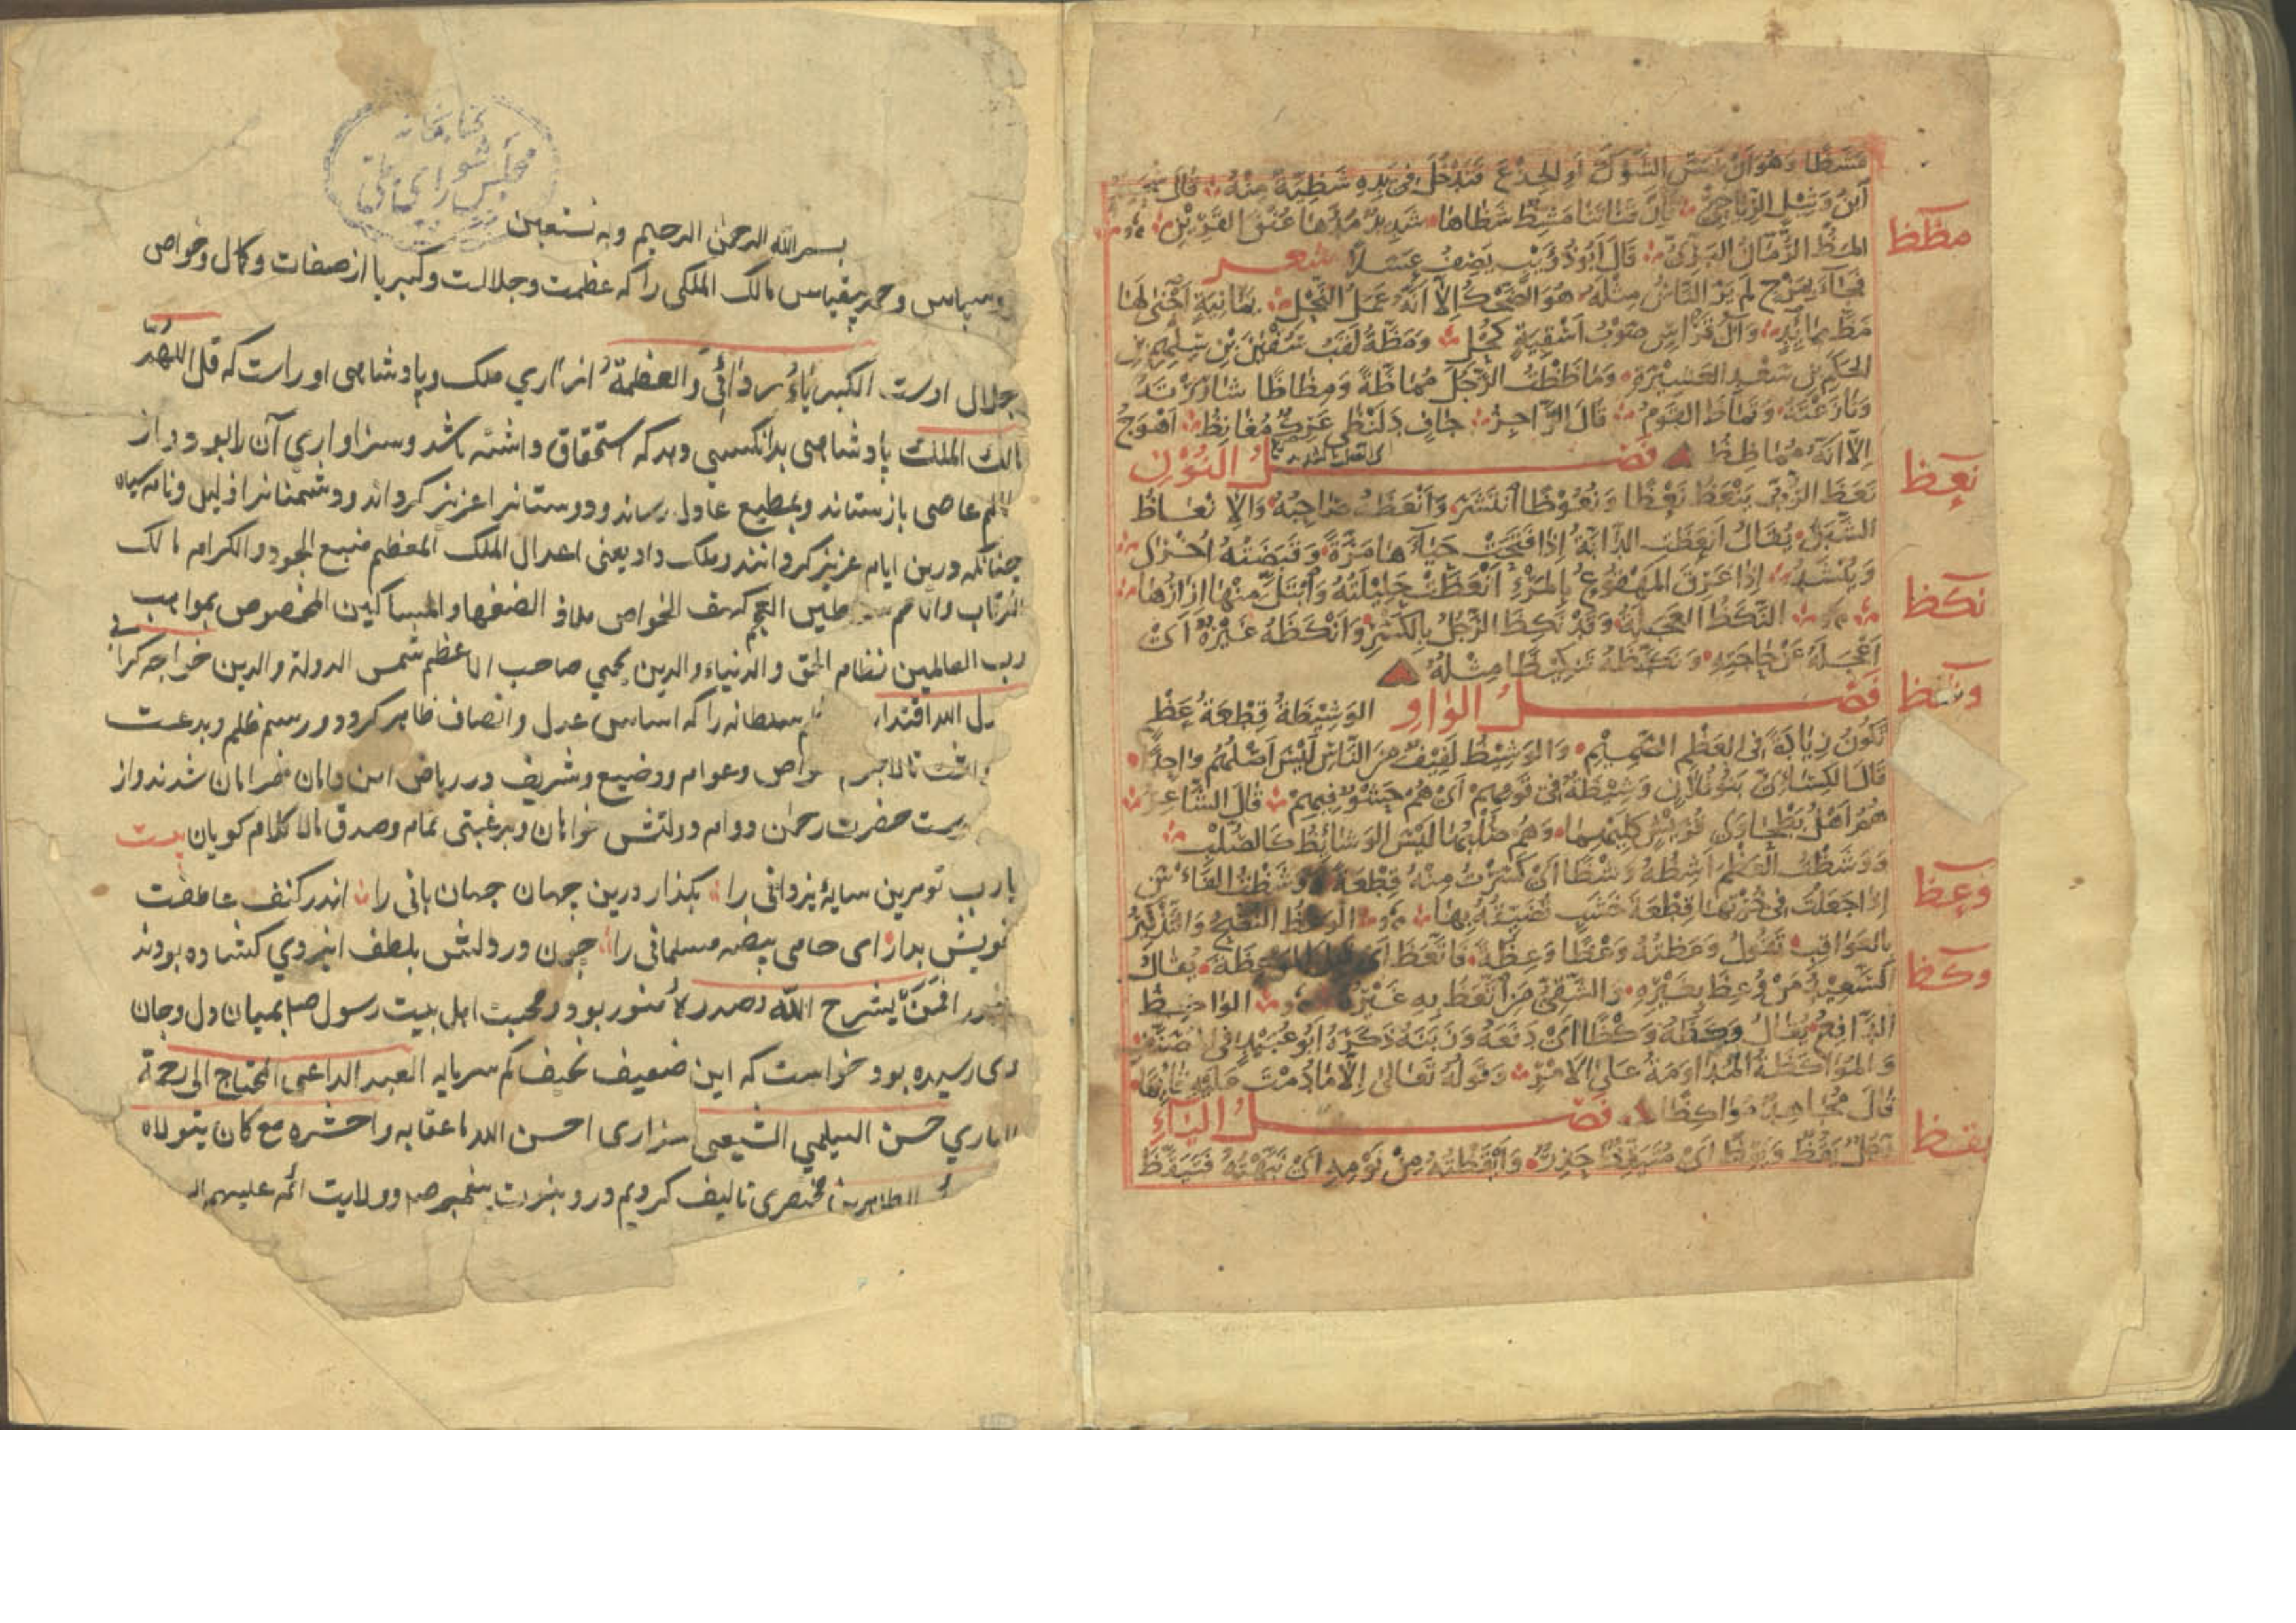 مشظا وهو ان يمس الشوك او الجذع فتدخل فى يده شظية منه قال
ابن وثيل الرياحى وان قناتنا مشظ شظاها شديد مدها عنق القرين
مظظ
المظ الرمان البرى قال ابو ذؤيب يصف عسلا شعر
فجاء بمزج لم ير الناس مثله هو الضحك الا انه عمل النحل يمانية احيى لها
مظ مائد وآل قراس صوب اسقية كحل ومظة لقب سفين بن سلهم بن
الحكم بن سعد العشيرة وماظظت الرجل مماظة ومظاظا شاررته
ونازعته وتماظ القوم قال الراجز جاف دلنظى عرك مغانظ اهوج
الا انه مماظظ فصل النون
نعظ
نعظ الزب ينعظ نعظا ونعوظا انتشر وانعظه صاحبه والانعاظ
الشبق يقال انعظت الدابة اذا فتحت حياءها مرة وقبضته اخرى
وينشد اذا عرق المهقوع بالمرء انعظت حليلته وابتل منها ازارها
نكظ
النكظ العجلة وقد نكظ الرجل بالكسر وانكظه غيره اى
اعجله عن حاجته ونكظه تنكيظا مثله
وشظ
فصل الواو الوشيظة قطعة عظم
تكون زيادة فى العظم الصميم والوشيظ لفيف من الناس ليس اصلهم واحدا
قال الكسائى بنو فلان وشيظة فى قومهم اى هم حشو فيهم قال الشاعر
هم اهل بطحاوى قريش كليهما وهم صلبها ليس الوشائظ كالصلب
ووشظت العظم اشظه وشظا اى كسرت منه قطعة ووشظت الفاس
وعظ
اذا جعلت فى خرتها قطعة خشب تضيقه بها الوعظ النصح والتذكير
بالعواقب تقول وعظته وعظا وعظة فاتعظ اى قبل الموعظة يقال
وكظ
السعيد من وعظ بغيره والشقى من اتعظ به غيره الواكظ
الدافع يقال وكظه وكظا اى دفعه وزبنه ذكره ابو عبيد فى المصنف
والمواكظة المداومة على الامر وقوله تعالى الا ما دمت عليه قائما
قال مجاهد مواكظا فصل الياء
يقظ
رجل يقظ ويقظ اى متيقظ حذر وايقظته من نومه اى نبهته فتيقظ
كتابخانه
مجلس شورای ملی
بسم الله الرحمن الرحيم وبه نستعين
وسپاس وحمد بيقياس مالك الملكى را كه عظمت وجلالت وكبريا از صفات وكمال وخواص
جلال اوست الكبرياء ردائى والعظمة ازارى ملك وپادشاهى اوراست كه قل اللهم
مالك الملك پادشاهى بدانكسى دهد كه استحقاق داشته باشد وسزاوارى آن را بود واز
ظالم عاصى بازستاند وبمطيع عادل رساند ودوستانرا عزيز كرداند ودشمنانرا ذليل ونامه سياه
چنانكه درين ايام عزيز كردانند وملك داد يعنى اعدل الملك المعظم منبع الجود والكرامه مالك
الرقاب والامم سلاطين العجم كهف الخواص ملاذ الضعفا والمساكين المخصوص بمواهب
رب العالمين نظام الحق والدنيا والدين يحيى صاحب الاعظم شمس الدولة والدين خواجه كرابى
دل الله اقتدار سلطانه را كه اساس عدل وانصاف ظاهر كرد ودر رسم ظلم وبدعت
داشت تا لاجرم خواص وعوام ووضيع وشريف در رياض امن وامان خرامان شدند واز
حضرت رحمن دوام دولتش خواهان وبرغبتى تمام وصدق مالا كلام كويان بيت
يارب تو مرين سايه يزدانى را بكذار درين جهان جهان بانى را اندر كنف عاطفت
خويش بدار اى حامى بيضه مسلمانى را چون در دولتش بلطف ايزدي كشاده بودند
افمن يشرح الله صدره منور بود ومحبت اهل بيت رسول صلم بميان دل وجان
رسيده بود خواست كه اين ضعيف نحيف كم سرمايه العبد الداعى المحتاج الى رحمة
البارى حسن السيلمى الشيعى سزارى احسن الله ماعقابه واحشره مع كان يتولاه
الطاهرين مختصرى تاليف كرديم در ونبوت پيغمبر صلم وولايت ائمه عليهم